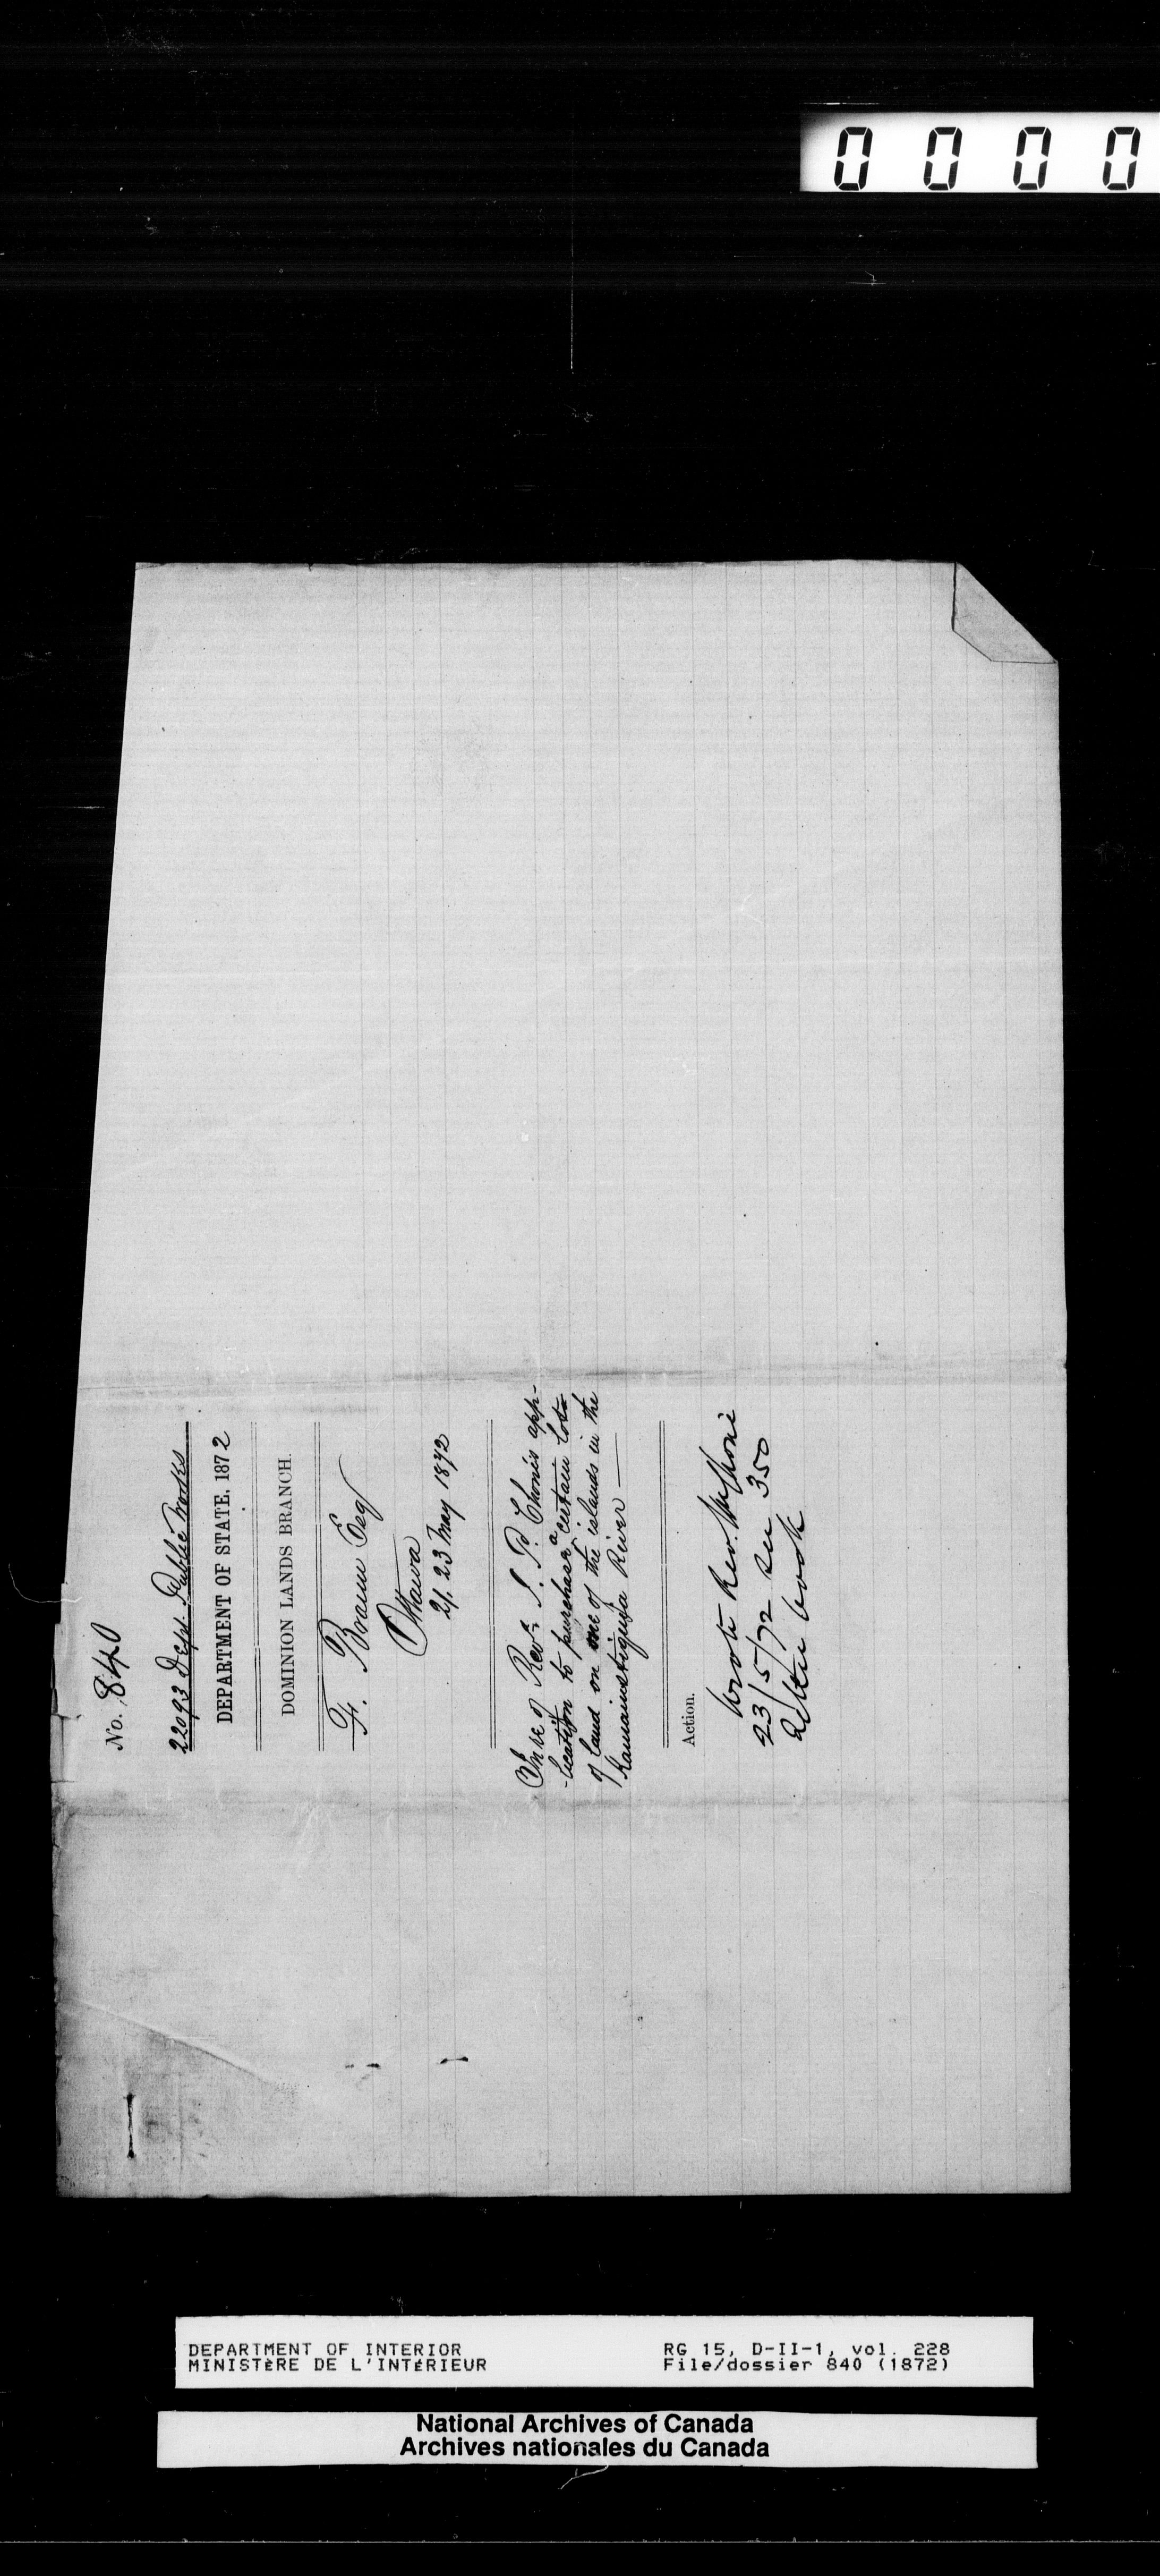 0000
No. 840
22093 Dept. Public Works
DEPARTMENT OF STATE, 1872
DOMINION LANDS BRANCH.
F. Braun Esq
Ottawa
21, 23 May 1872
In re of Revd. P. Choné's app-
-lication to purchase a certain lots
of land on one of the islands in the
Kaministiquia River
Action.
Wrote Rev. Mr Choné
23/5/72 See 350
Letter book
DEPARTMENT OF INTERIOR
MINISTÈRE DE L'INTÉRIEUR
RG 15, D-II-1, vol. 228
File/dossier 840 (1872)
National Archives of Canada
Archives nationales du Canada